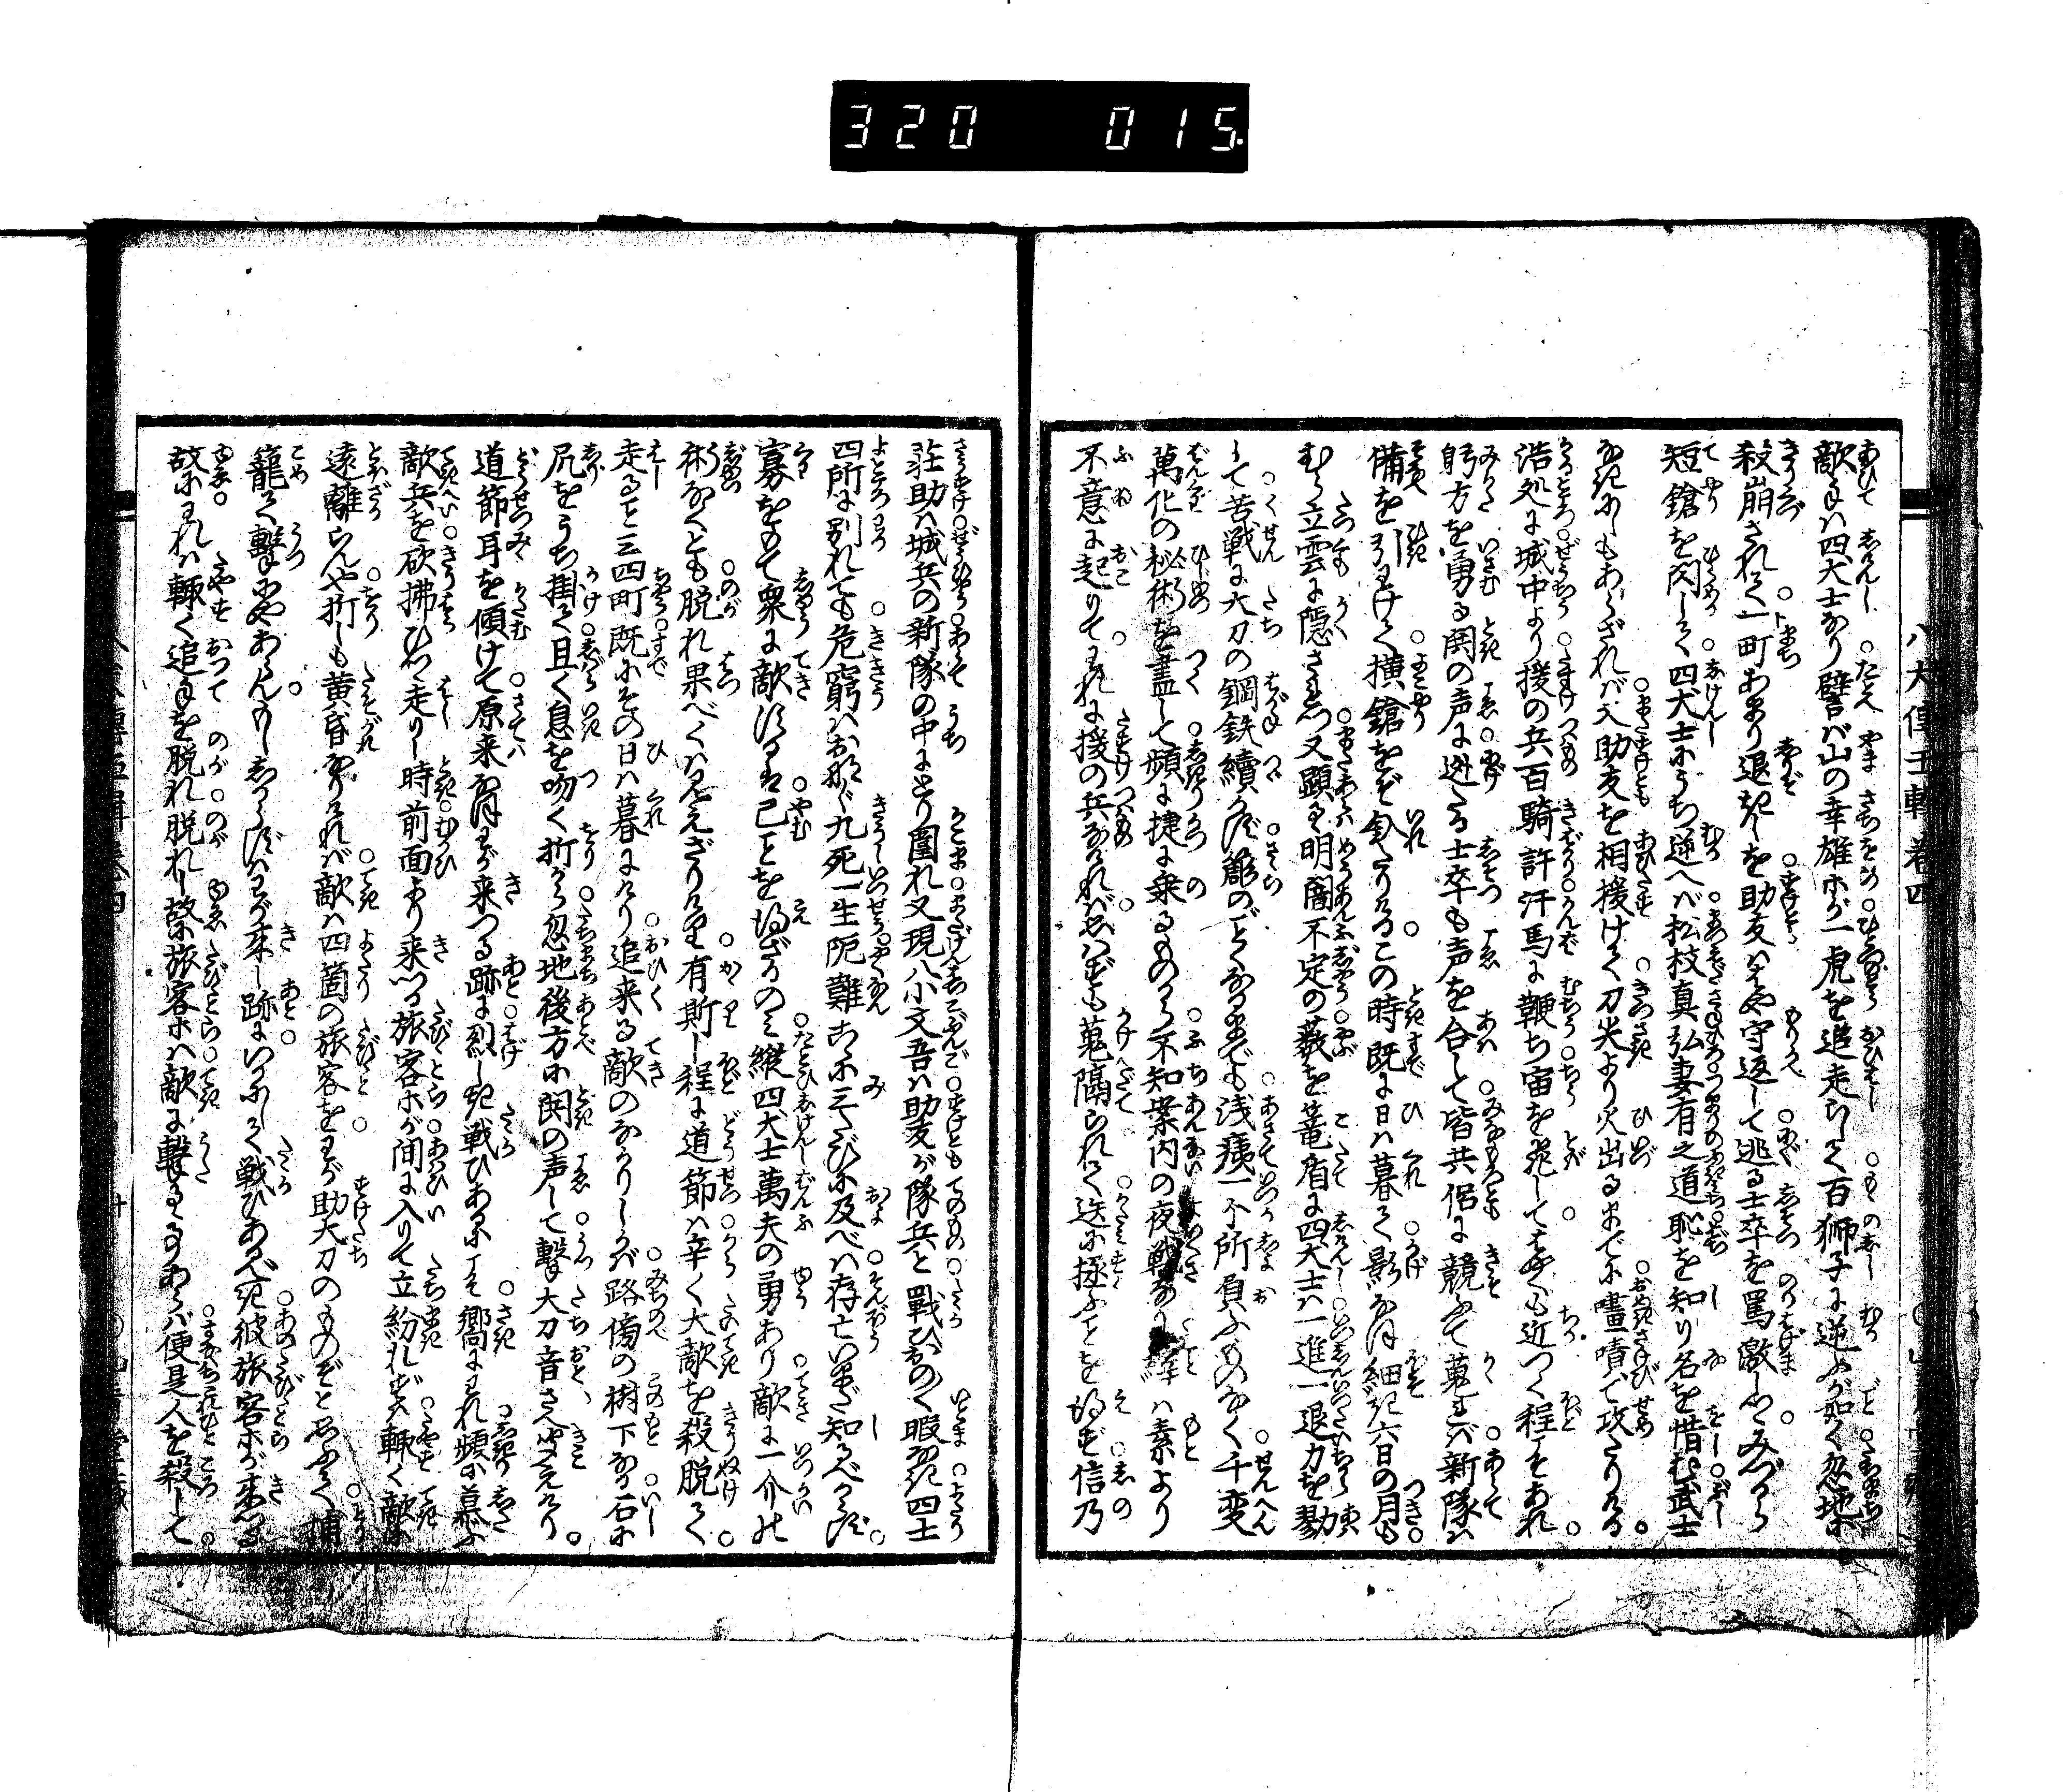 320 015
八犬傳五輯卷四
敵手ハ四犬士なり譬バ山の幸雄等が一虎を追走らして百獅子に逆ふが如く忽地に
殺崩されて一町あまり退きしを助友ハはや守返して逃る士卒を罵激しつみづから
短鎗を閃して四犬士にうち逆へバ松枝真弘妻有之道恥を知り名を惜む武士
なきにしもあらざれバ又助友を相援けて刀尖より火出るまでに嘖で攻たりける
浩処に城中より援の兵百騎許汗馬に鞭ち宙を飛してはやくも近つく程こそあれ
躬方を勇る鬨の声に迯たる士卒も声を合して皆共侶に競ふて蒐れバ新隊ハ
備を引わけて横鎗をぞ入たりけるこの時既に日ハ暮て影なほ細き六日の月も
むら立雲に隠されつ又顕れつ明闇不定の薮を篭盾に四犬士ハ一進一退力を勠
して苦戦に大刀の鋼鉄續かず簓のごとくなるまでも浅痍一个所負ふものなく千変
萬化の秘術を盡して頻に捷に乗るものから不知案内の夜戦なり ハ素より
不意に起りてわれに援の兵なけれバ 蒐隔られて迭に拯ふことを得ず信乃
荘助ハ城兵の新隊の中にとり圍れ又現八小文吾ハ助友が隊兵と戰ひおのく暇なき四士
四所に別れても危窮ハおなじ九死一生阨難 に三たびに及べハ存亡いまだ知るべからず
寡をもて衆に敵 已ことを得ざるのミ縦四犬士萬夫の勇あり敵に一介の
術なくとも脱れ果べくハ見えざりける有斯し程に道節ハ辛く大敵を殺脱けて
走ること三四町既にその日ハ暮にけり追来る敵のなかりしかバ路傍の樹下なる石に
尻をうち掛て且く息を吻く折から忽地後方に鬨の声して撃大刀音さへ聞えけり
道節耳を傾けて原来なほわが来つる跡に烈しき戦ひあるにこそ嚮にわれ頻に慕ふ
敵兵を砍拂ひつゝ走りし時前面より来つる旅客等が間に入りて立紛れずハ輒く敵に
遠離らんや折しも黄昏なりけれバ敵ハ四箇の旅客をわが助大刀のものぞと思ふて捕
籠て撃にやあらんもししからずハわが来し跡にいかにして戦ひあるべき彼旅客等が来つる
故にわれハ輒く追手を脱れ脱れし故に旅客等ハ敵に撃るゝ事あらバ便是人を殺して